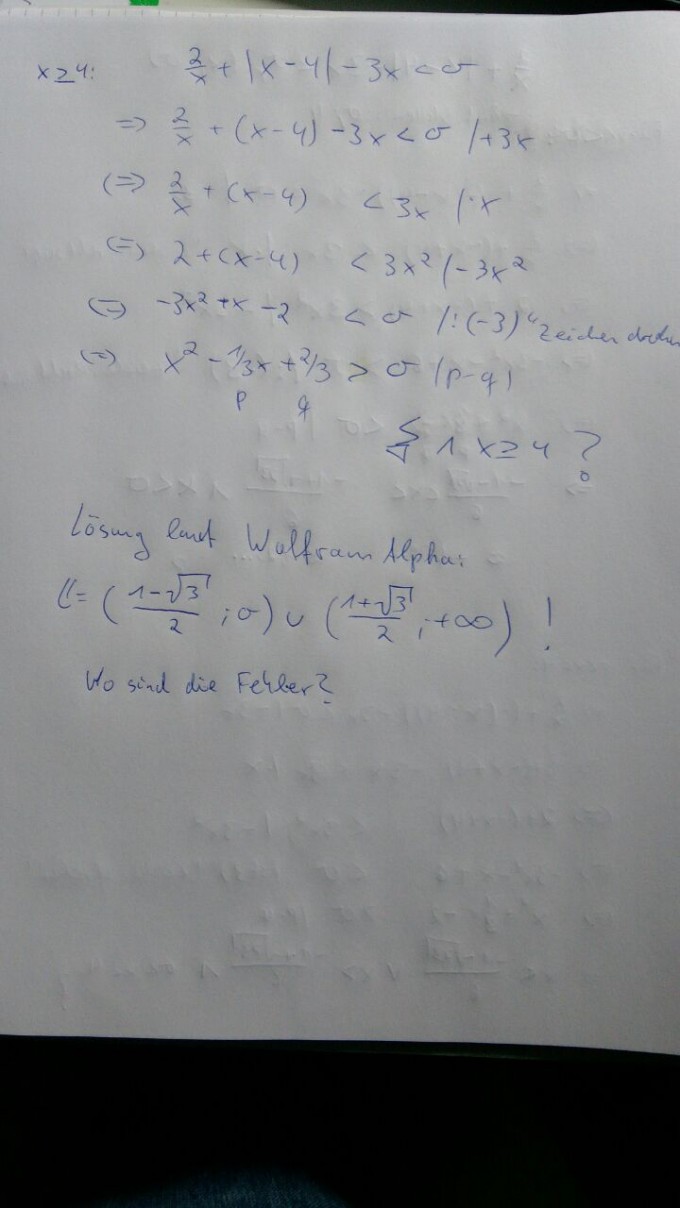 x ≥ 4: 2/x + |x - 4| - 3x < 0
=> 2/x + (x - 4) - 3x < 0 /+3x
(=) 2/x + (x - 4) < 3x /·x
(=) 2 + (x - 4) < 3x² /-3x²
(=) -3x² + x - 2 < 0 /:(-3) "Zeichen
(=) x² - 1/3x + 2/3 > 0 (p-q)
p q
1 x ≥ 4 ?
Lösung laut Wolfram Alpha:
𝕃 = ((1-√3)/2 ; 0) ∪ ((1+√3)/2 ; +∞) !
Wo sind die Fehler?